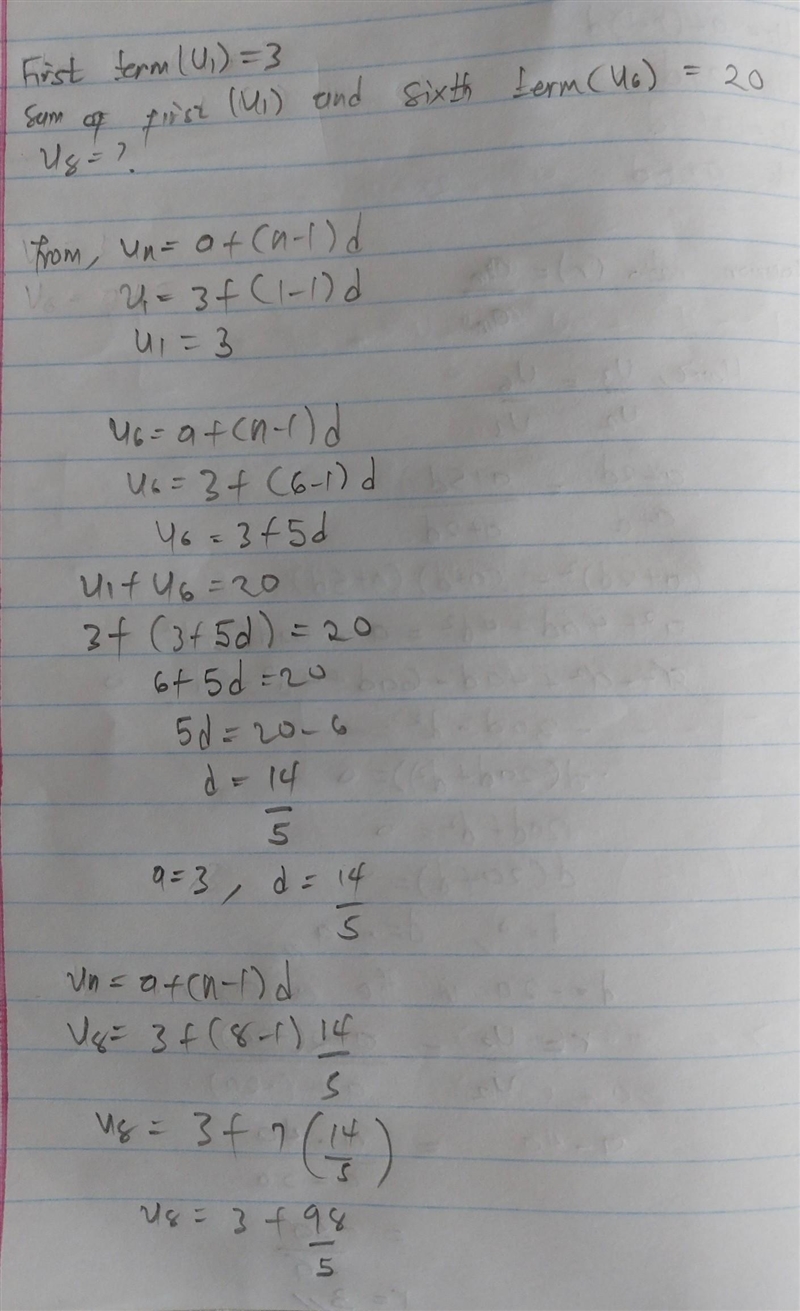 First term (U₁) = 3
Sum of first (U₁) and sixth term (U₆) = 20
U₈ = ?
from, Uₙ = a + (n-1)d
U₁ = 3 + (1-1)d
U₁ = 3
U₆ = a + (n-1)d
U₆ = 3 + (6-1)d
U₆ = 3 + 5d
U₁ + U₆ = 20
3 + (3 + 5d) = 20
6 + 5d = 20
5d = 20 - 6
d = 14/5
a = 3, d = 14/5
Uₙ = a + (n-1)d
U₈ = 3 + (8-1) 14/5
U₈ = 3 + 7 (14/5)
U₈ = 3 + 98/5